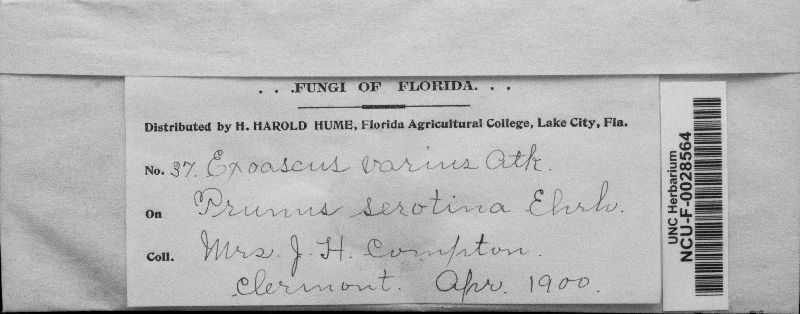 . . .FUNGI OF FLORIDA. . .
Distributed by H. HAROLD HUME, Florida Agricultural College, Lake City, Fla.
No. 37. Exoascus varius Atk.
On Prunus serotina Ehrh.
Coll. Mrs. J. H. Compton.
Clermont. Apr. 1900.
UNC Herbarium
NCU-F-0028564